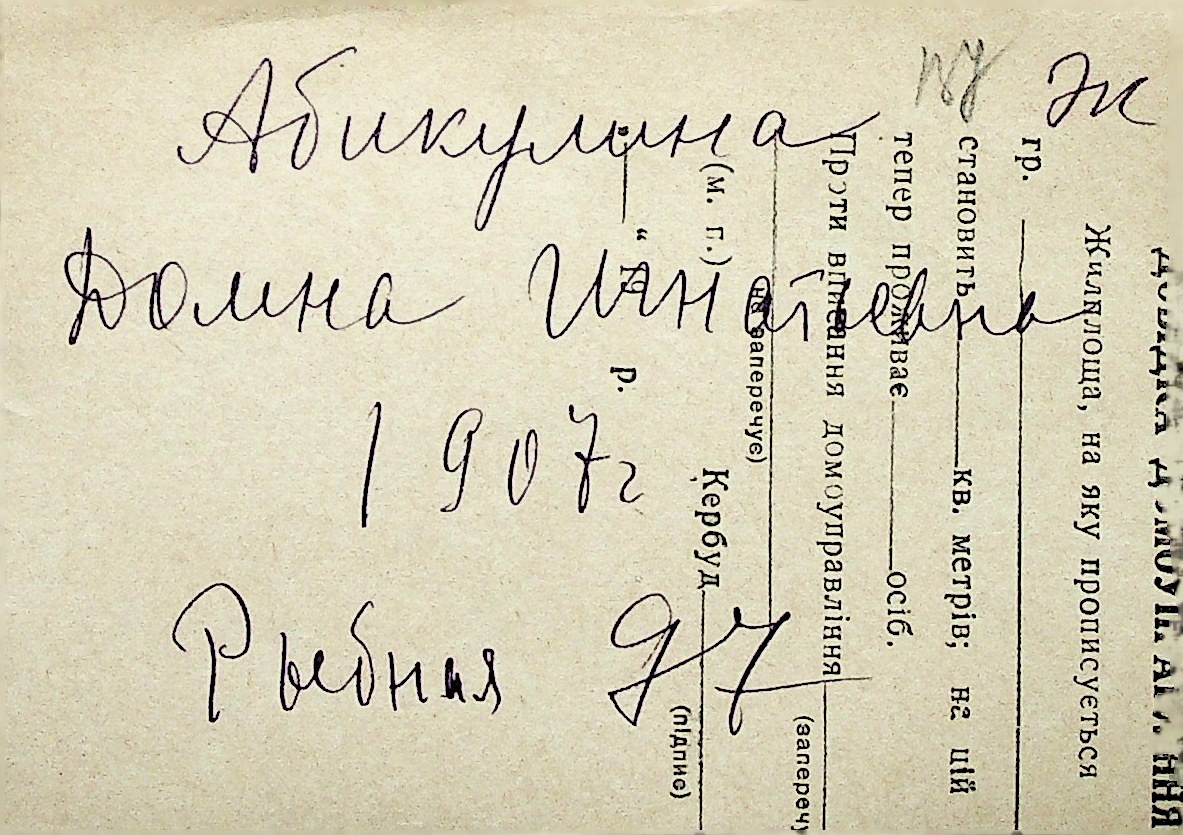 Абикулина Эк
Домна Игнатевна
1907г
Рыбная 97
ДОВІДКА ДОМОУПРАВЛІННЯ
Жилплоща, на яку прописується
гр.
становить кв. метрів; на цій
тепер проживає осіб.
Проти вписання домоуправління
(заперечу
на заперечує)
(м. п.) Кербуд
(підпис)
" " 19 р.